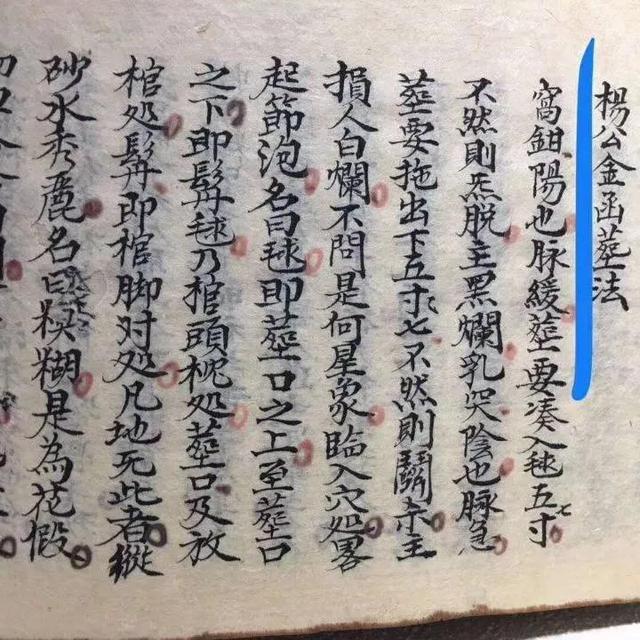 楊公金函葬法
窩鉗陽也脉緩葬要湊入毬五寸七
不然則炁脱主黑爛乳突陰也脉急
葬要拖出下五寸七不然則鬪杀主
損人白爛不問是何星象臨入穴処畧
起節泡名曰毬即葬口之上至葬口
之下即髯毬乃棺頭枕処葬口及放
棺処髯即棺脚对処凡地死此者縱
砂水秀麗名曰糢糊是為花假